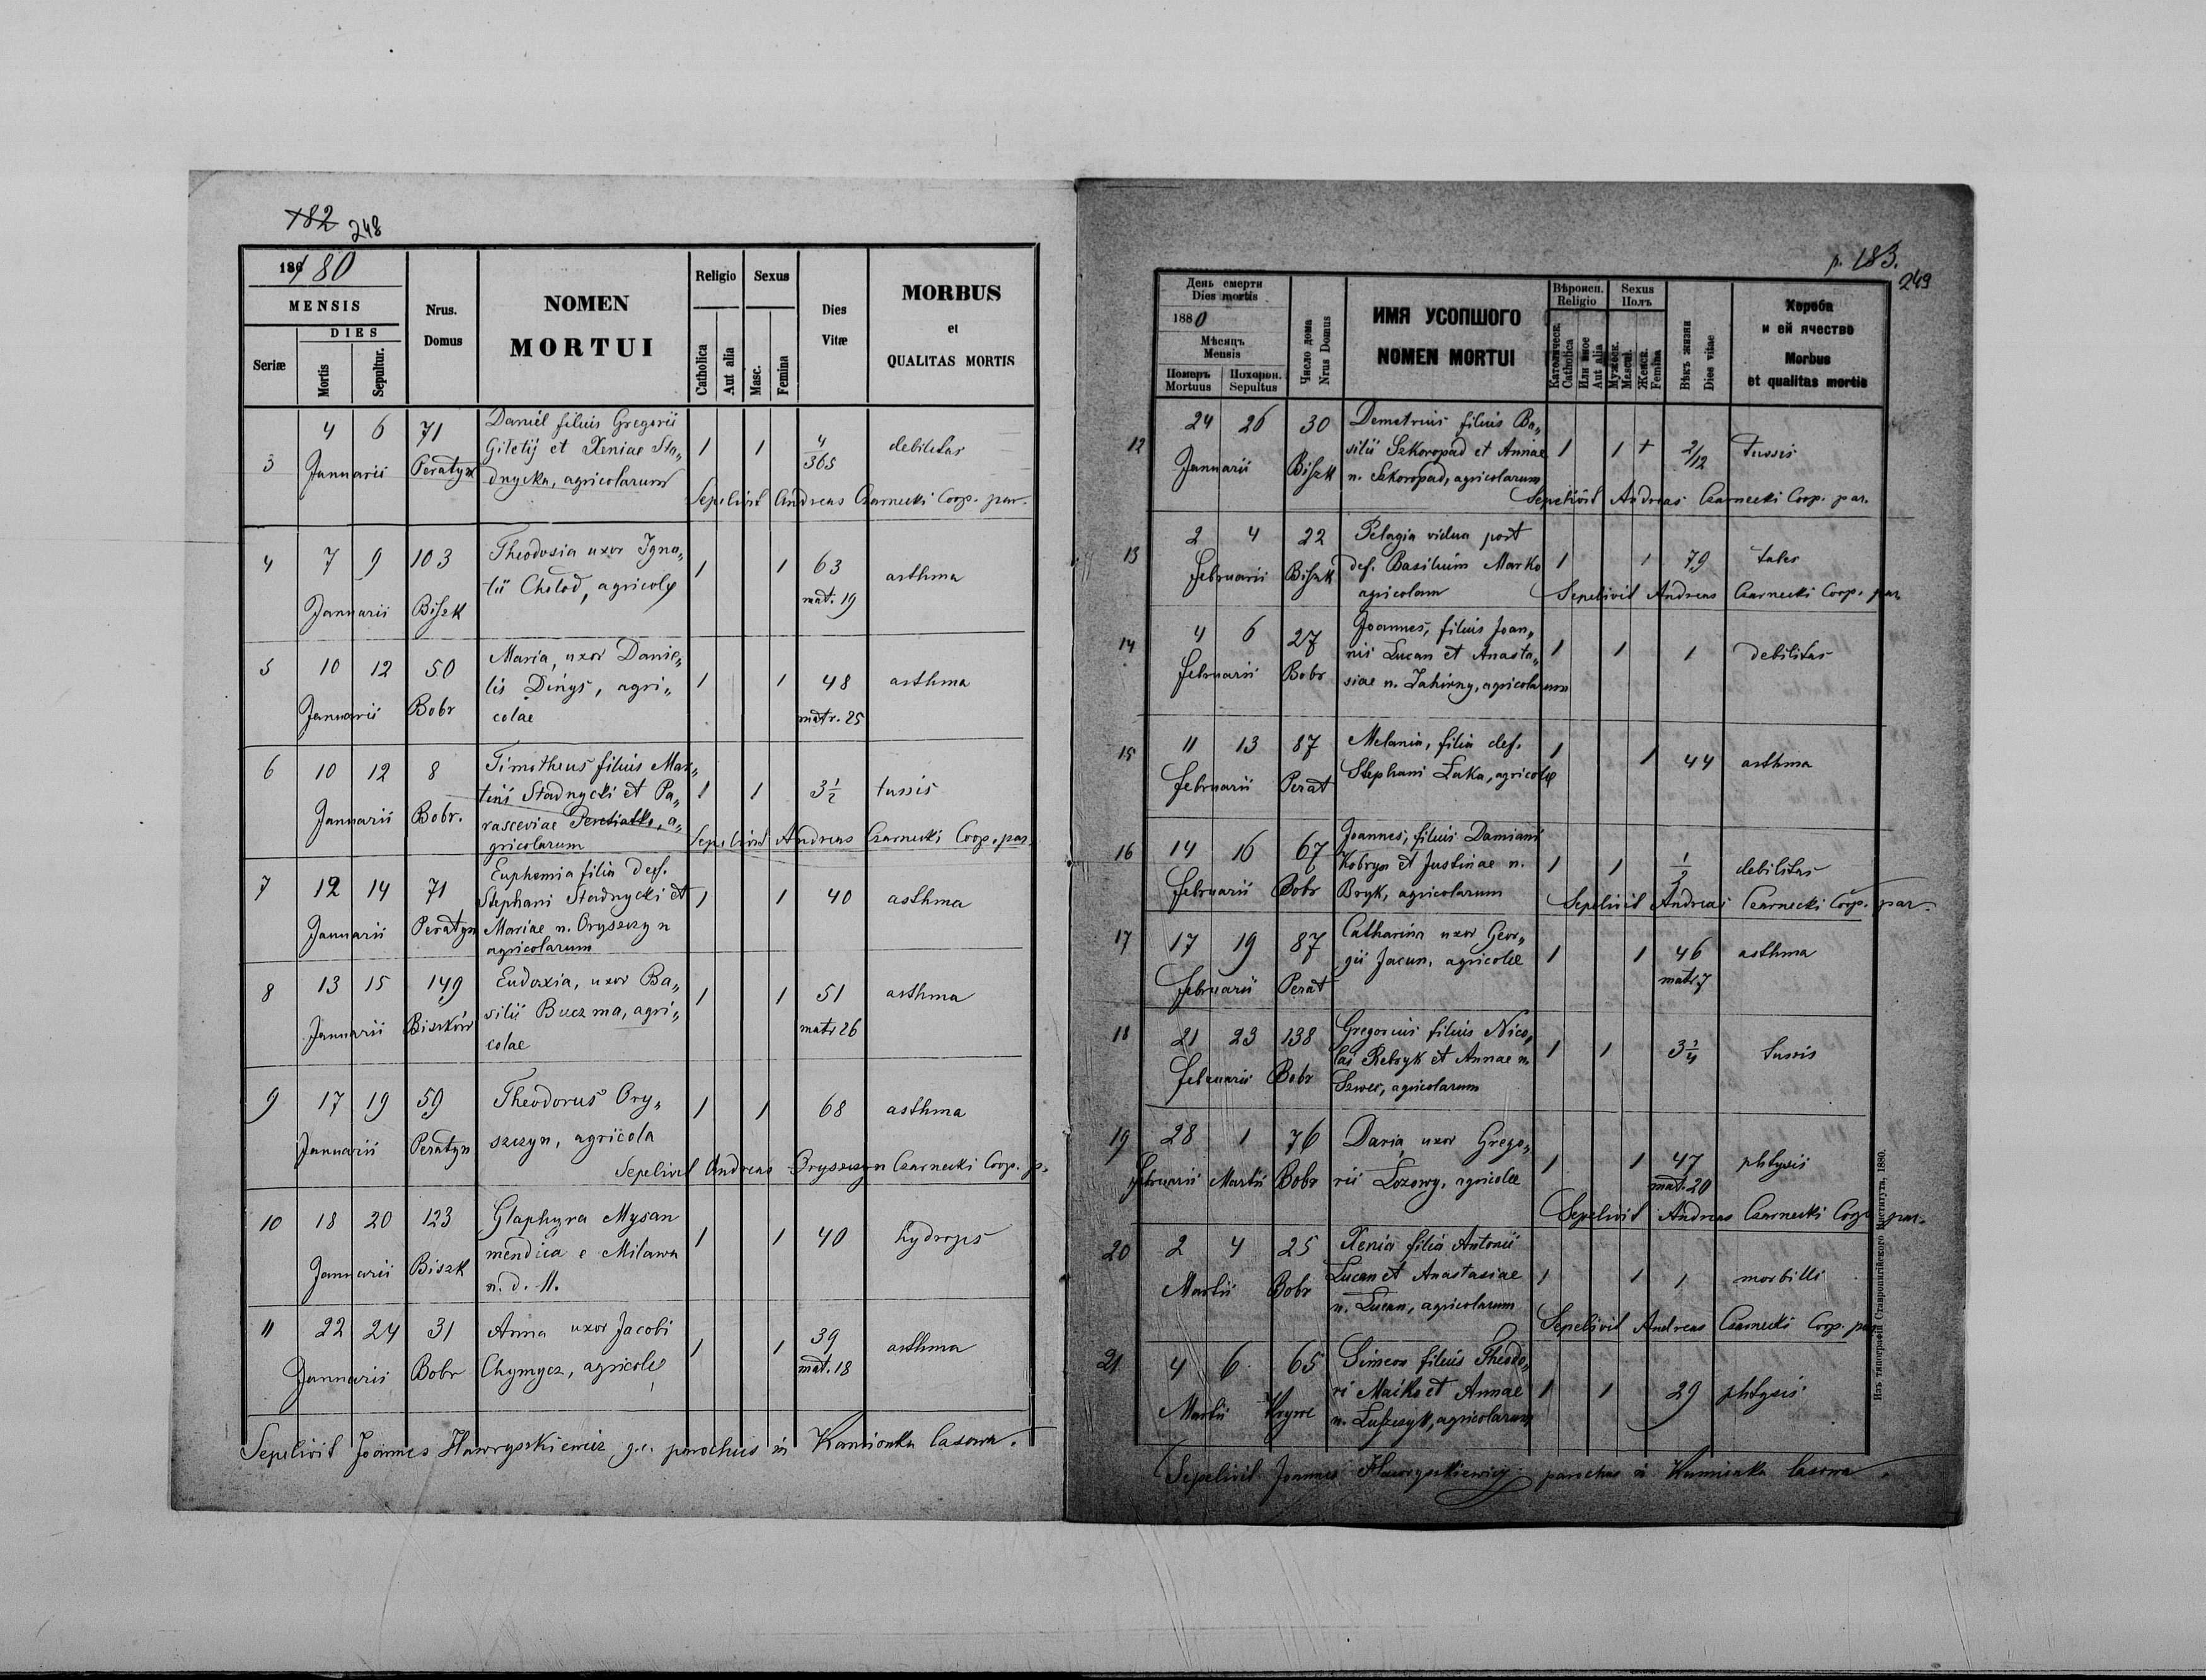 182 248
186 1880
MENSIS
DIES
Seriæ
Mortis
Sepultur.
Nrus.
Domus
NOMEN
MORTUI
Religio
Catholica
Aut alia
Sexus
Masc.
Femina
Dies
Vitæ
MORBUS
et
QUALITAS MORTIS
3 4 6 71 Daniel filius Gregorii 1 1 4/365 debilitas
Januarii Peratyn Giletij et Xeniae Sta„
dnycka, agricolarum
Sepelivit Andreas Czarnecki Coop. par.
4 7 9 103 Theodosia uxor Igna„ 1 1 63 asthma
tii Cholod, agricolę
Januarii Biszk mat. 19
5 10 12 50 Maria, uxor Danie„ 1 1 48 asthma
lis Dinys, agri„
Januarii Bobr colae matr. 25
6 10 12 8 Timotheus filius Mar„ 1 1 3½ tussis
tini Stadnycki et Pa„
Januarii Bobr. rasceviae Peretiatko, a„
gricolarum
Sepelivit Andreas Czarnecki Coop. par.
7 12 14 71 Euphemia filia def. 1 1 40 asthma
Stephani Stadnycki et
Januarii Peratyn Mariae n. Oryszczyn
agricolarum
8 13 15 149 Eudoxia, uxor Ba„ 1 1 51 asthma
silii Buczma, agri„
Januarii Biszków colae matr 26
9 17 19 59 Theodorus Ory„ 1 1 68 asthma
Januarii Peratyn szczyn, agricola
Sepelivit Andreas Oryszczyn Czarnecki Coop. p.
10 18 20 123 Glaphyra Mysan 1 1 40 hydrops
mendica e Milawa
Januarii Biszk n. d. 11.
11 22 24 31 Anna uxor Jacobi 1 1 39 asthma
Januarii Bobr Chymycz, agricolę mat. 18
Sepelivit Joannes Hawryszkiewicz g.c. parochus in Kamionka lasowa.
p. 183.
249
День смерти
Dies mortis
1880
Мѣсяцъ
Mensis
Померъ
Mortuus
Похорон.
Sepultus
Число дома
Nrus Domus
ИМЯ УСОПШОГО
NOMEN MORTUI
Вѣроисп.
Religio
Католическ.
Catholica
Или иное
Aut alia
Sexus
Полъ
Мужеск.
Mascul.
Женск.
Femina
Вѣкъ жизни
Dies vitae
Хороба
и ей ячество
Morbus
et qualitas mortis
12 24 26 30 Demetrius filius Ba„ 1 1 + 2/12 Tussis
silii Szkoropad et Annae
Januarii Biszk n. Szkoropad, agricolarum
Sepelivit Andreas Czarnecki Coop. par.
13 2 4 22 Pelagia vidua post 1 1 79 tabes
Februarii Biszk def. Basilium Marko
agricolam
Sepelivit Andreas Czarnecki Coop. par
14 4 6 27 Joannes, filius Joan„ 1 1 1 debilitas
nis Lucan et Anasta„
Februarii Bobr siae n. Zahirny, agricolarum
15 11 13 87 Melania, filia def. 1 1 44 asthma
Februarii Perat Stephani Luka, agricolę
16 14 16 67 Joannes, filius Damiani 1 1 ½ debilitas
Kobryn et Justinae n.
Februarii Bobr Bryk, agricolarum
Sepelivit Andreas Czarnecki Coop. par.
17 17 19 87 Catharina uxor Geor„ 1 1 46 asthma
gii Jacun, agricolae
Februarii Perat matr 7
18 21 23 138 Gregorius filius Nico„ 1 1 3¾ tussis
lai Rebryk et Annae n.
Februarii Bobr Szwec, agricolarum
19 28 1 76 Daria, uxor Grego„ 1 1 47 phtysis
Februarii Martii Bobr rii Lozowy, agricolae mat. 20
Sepelivit Andreas Czarnecki Coop. par.
20 2 4 25 Xenia filia Antonii 1 1 1 morbilli
Lucan et Anastasiae
Martii Bobr n. Lucan, agricolarum
Sepelivit Andreas Czarnecki Coop. par
21 4 6 65 Simeon filius Theodo„ 1 1 29 phtysis
ri Maiko et Annae
Martii agricolarum
Sepelivit Joannes Hawryszkiewicz parochus in Kamionka lasowa.
Изъ типографіи Ставропигійского Института, 1880.